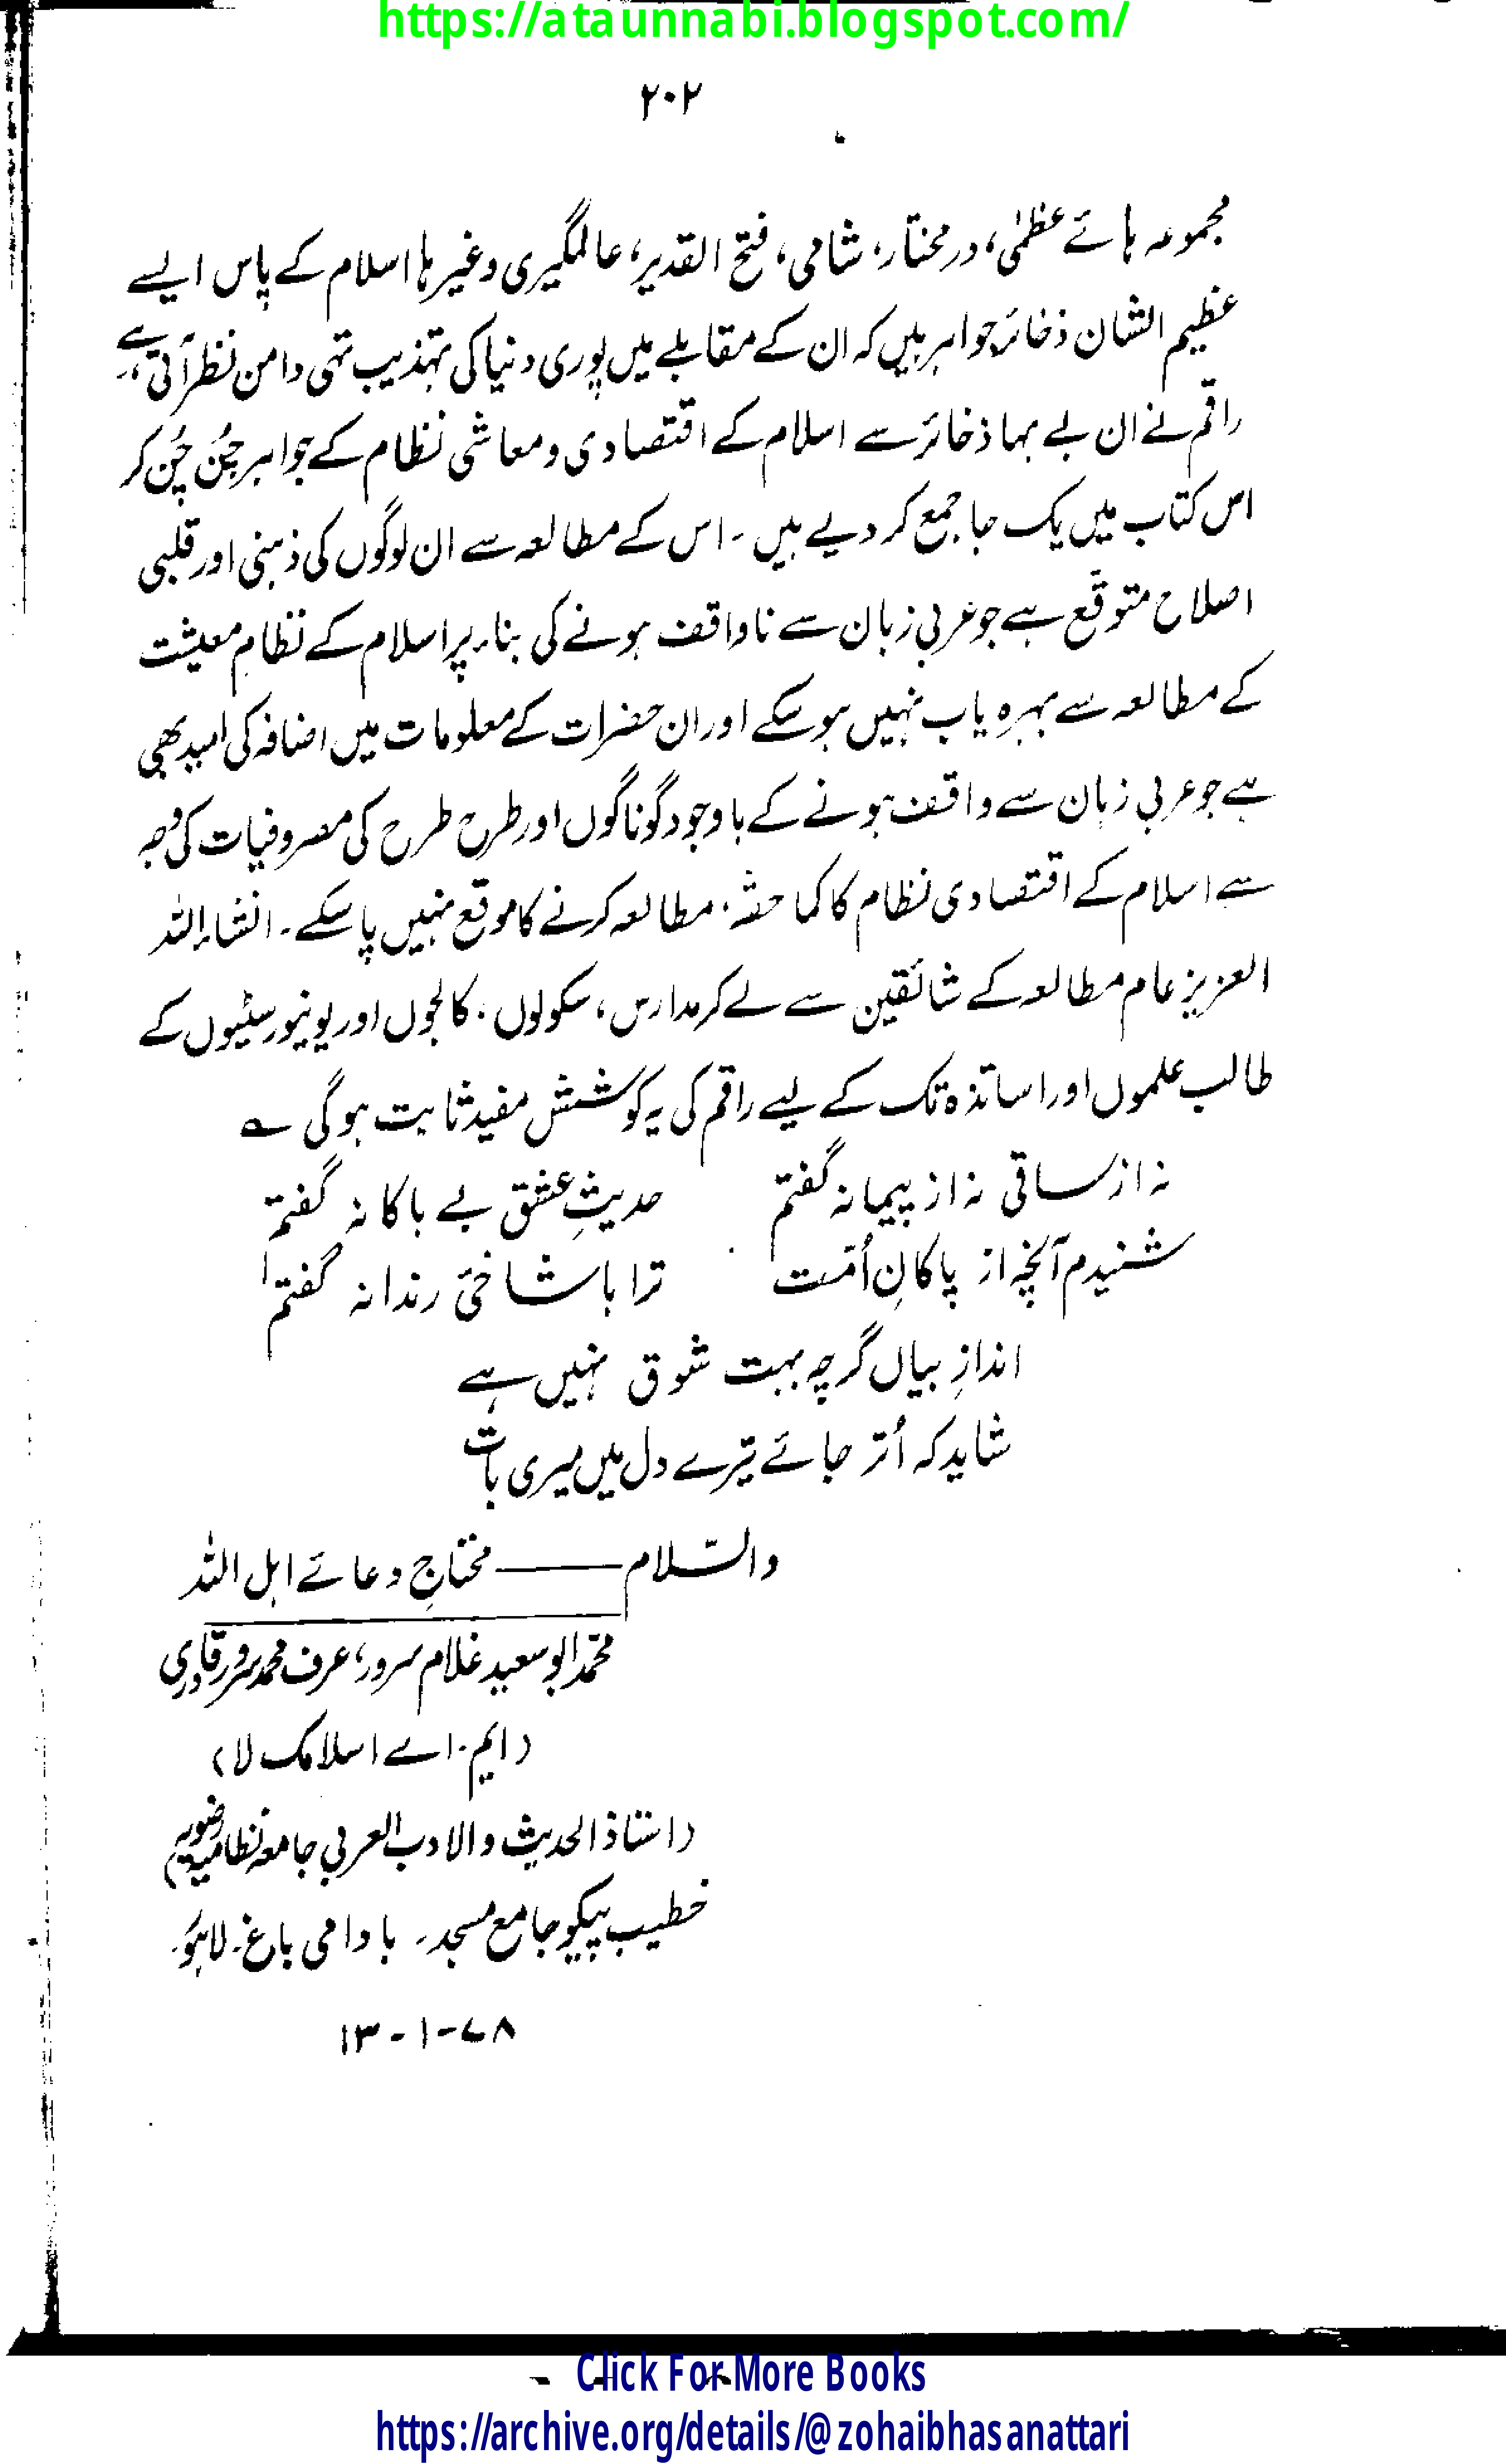 https://ataunnabi.blogspot.com/
۲۰۲
مجموعہ ہائے عظمٰی، درمختار، شامی، فتح القدیر، عالمگیری وغیرہا اسلام کے پاس ایسے
عظیم الشان ذخائرِ جواہر ہیں کہ ان کے مقابلے میں پوری دنیا کی تہذیب تہی دامن نظر آتی ہے،
راقم نے ان بے بہا ذخائر سے اسلام کے اقتصادی و معاشی نظام کے جواہر چُن چُن کر
اس کتاب میں یک جا جمع کر دیے ہیں ۔ اس کے مطالعہ سے ان لوگوں کی ذہنی اور قلبی
اصلاح متوقَّع ہے جو عربی زبان سے ناواقف ہونے کی بناء پر اسلام کے نظامِ معیشت
کے مطالعہ سے بہرہ یاب نہیں ہو سکے اور ان حضرات کے معلومات میں اضافہ کی امید بھی
ہے جو عربی زبان سے واقف ہونے کے باوجود گوناگوں اور طرح طرح کی مصروفیات کی وجہ
سے اسلام کے اقتصادی نظام کا کما حقہٗ، مطالعہ کرنے کا موقع نہیں پا سکے ۔ انشاء اللہ
العزیز عام مطالعہ کے شائقین سے لے کر مدارس، سکولوں، کالجوں اور یونیورسٹیوں کے
طالب علموں اور اساتذہ تک کے لیے راقم کی یہ کوشش مفید ثابت ہوگی ؎
نہ از ساقی نہ از پیمانہ گفتم حدیثِ عشق بے باکانہ گفتم
شنیدم آنچہ از پاکانِ اُمّت ترا با شاخیٔ رندانہ گفتم
اندازِ بیاں گرچہ بہت شوق نہیں ہے
شاید کہ اُتر جائے تیرے دل میں میری بات
والسّلام ——— محتاجِ دعائے اہل اللہ
محمّد ابو سعید غلام سرور، عرف محمد سرور قادری
(ایم۔اے اسلامک لا)
(استاذ الحدیث والادب العربی جامعہ نظامیہ رضویہ)
خطیب پیکو جامع مسجد۔ بادامی باغ۔ لاہور۔
۱۳-۱-۷۸
Click For More Books
https://archive.org/details/@zohaibhasanattari